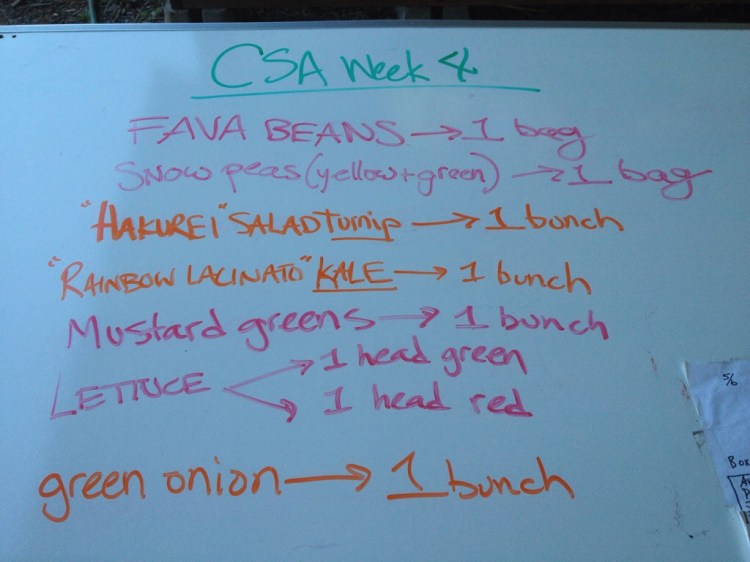 CSA Week 4
FAVA BEANS → 1 bag
Snow peas (yellow + green) → 1 bag
"HAKUREI" SALAD Turnip → 1 bunch
"RAINBOW LACINATO" KALE → 1 bunch
Mustard greens → 1 bunch
LETTUCE → 1 head green
→ 1 head red
green onion → 1 bunch
5/6
Box